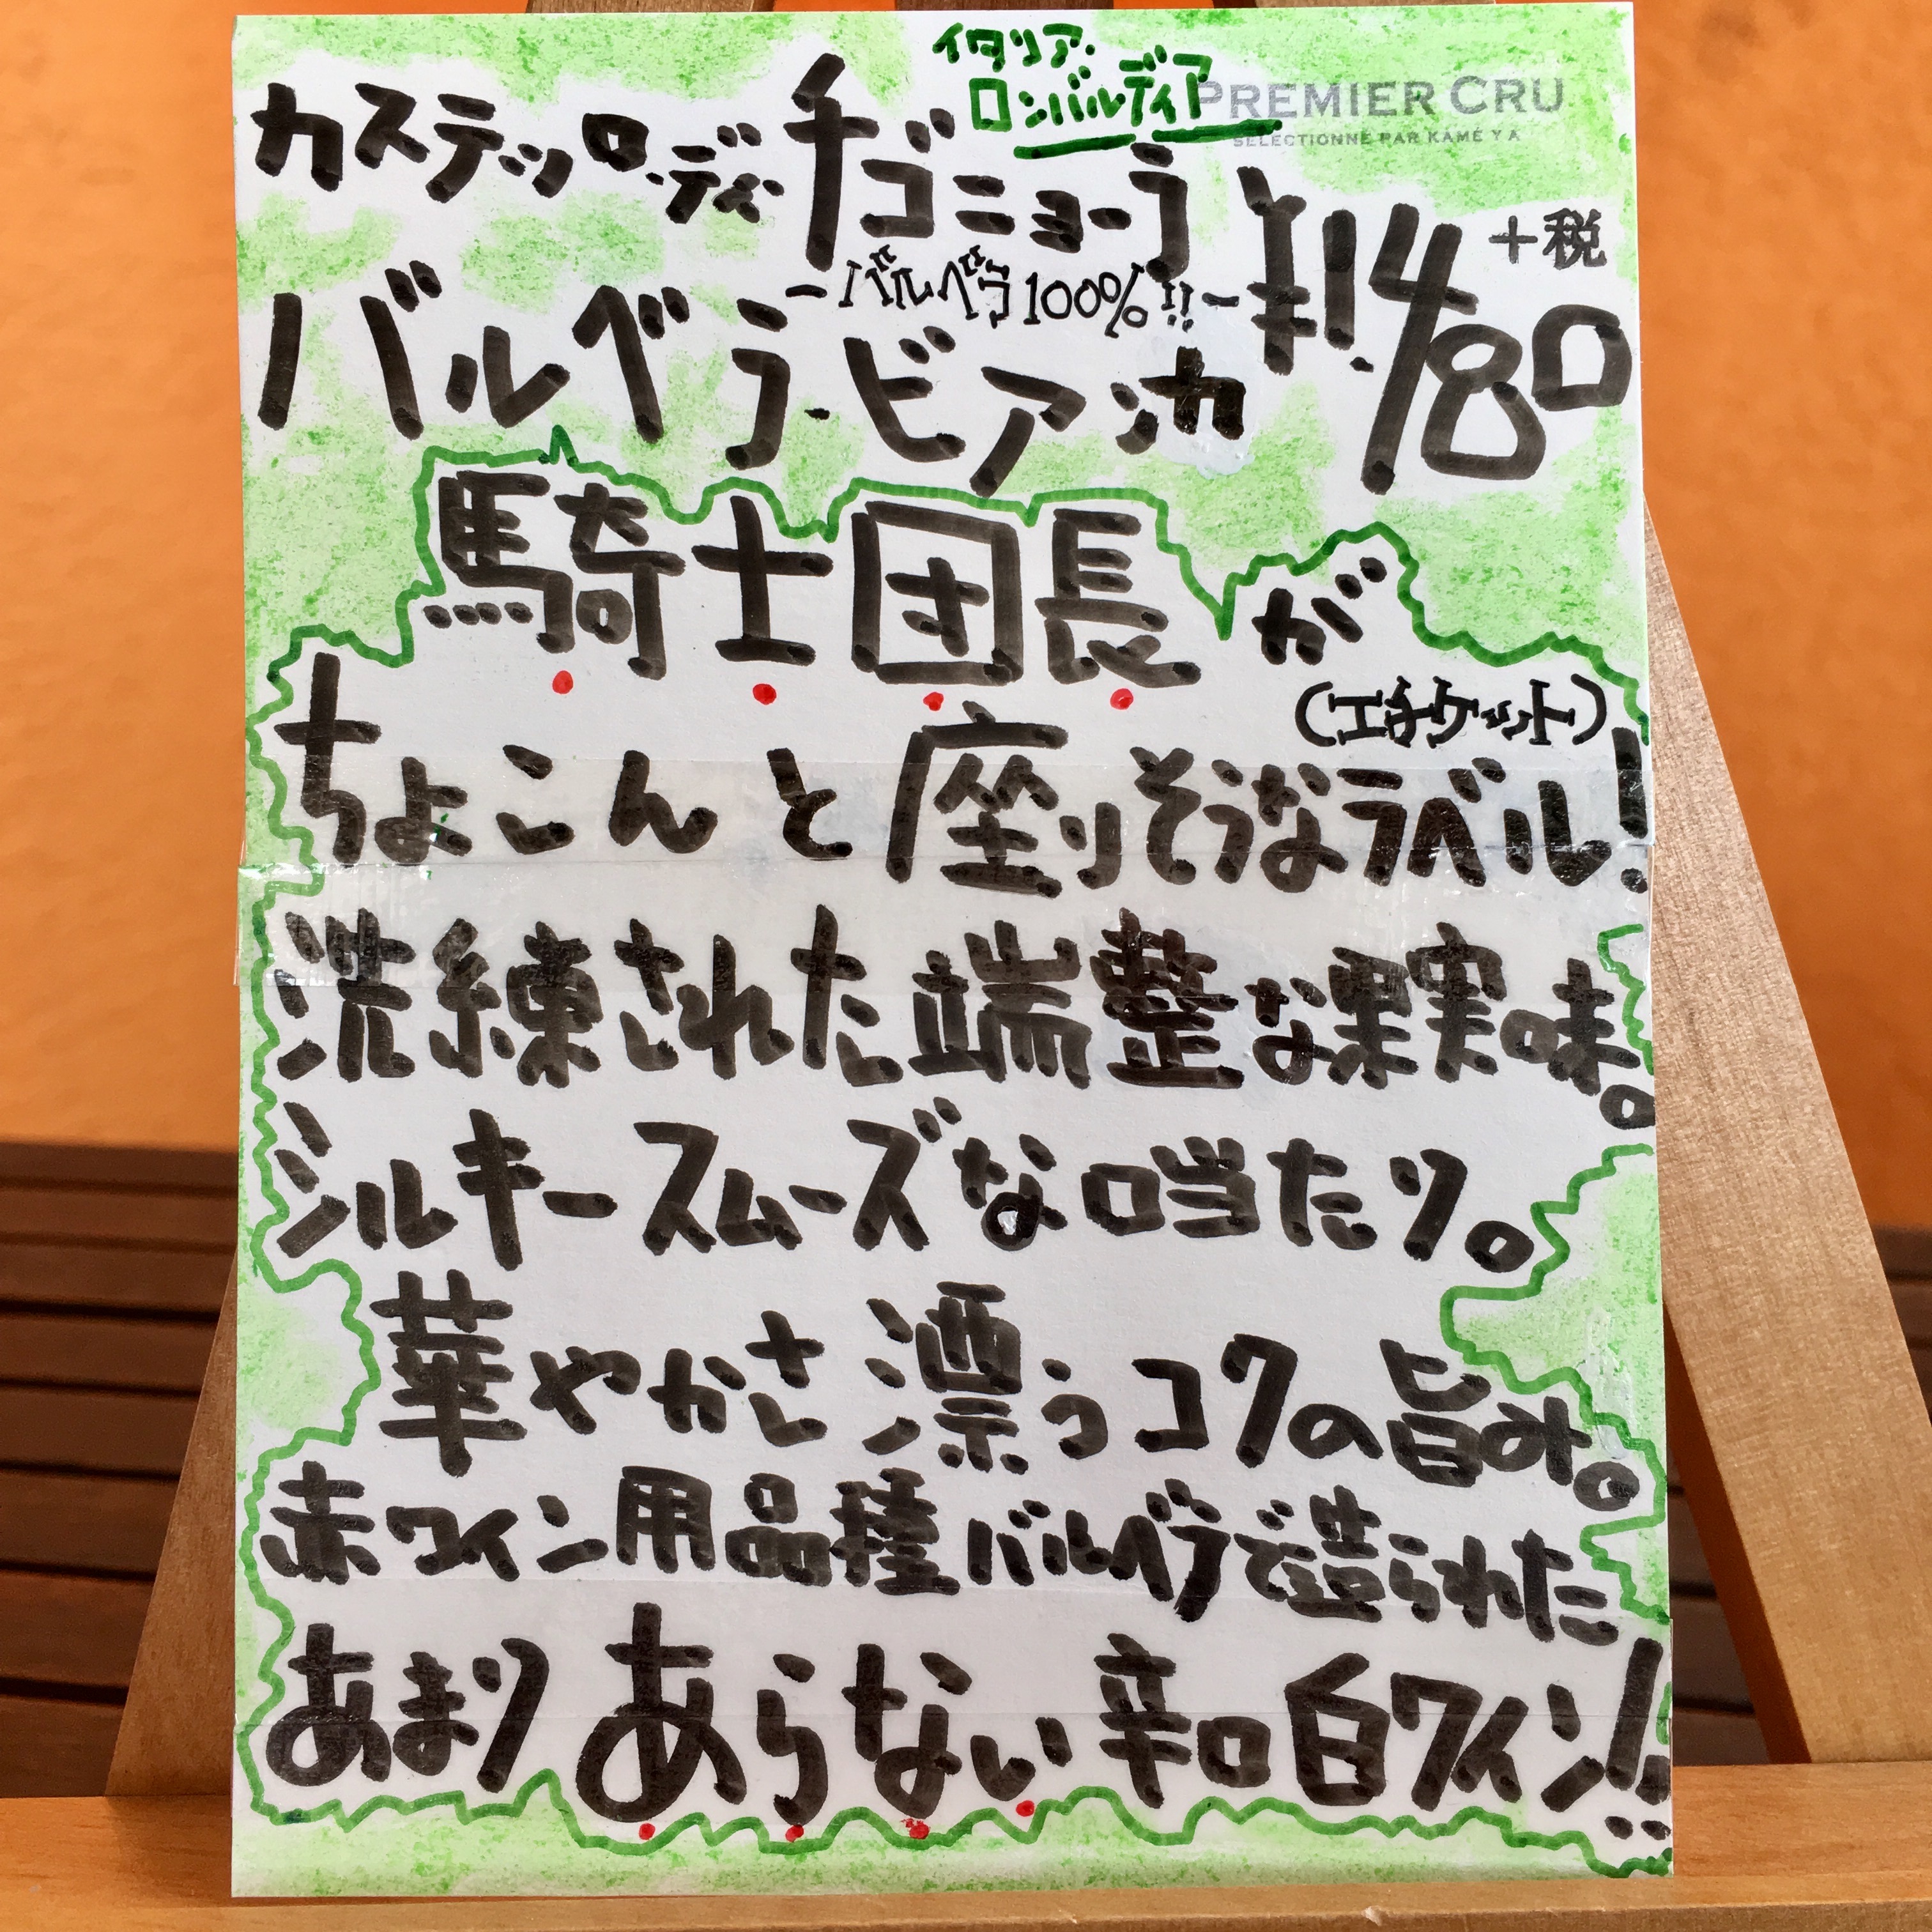 イタリア・
ロンバルディア
PREMIER CRU
SÉLECTIONNÉ PAR KAMÉYA
カステッロ・ディ チゴニョーラ
－バルベラ100%!!－
バルベラ・ビアンカ
¥1,480 +税
騎士団長が
(エチケット)
ちょこんと座りそうなラベル!
洗練された端整な果実味。
シルキースムーズな口当たり。
華やかさ漂うコクの旨み。
赤ワイン用品種バルベラで造られた
あまりあらない辛口白ワイン!!